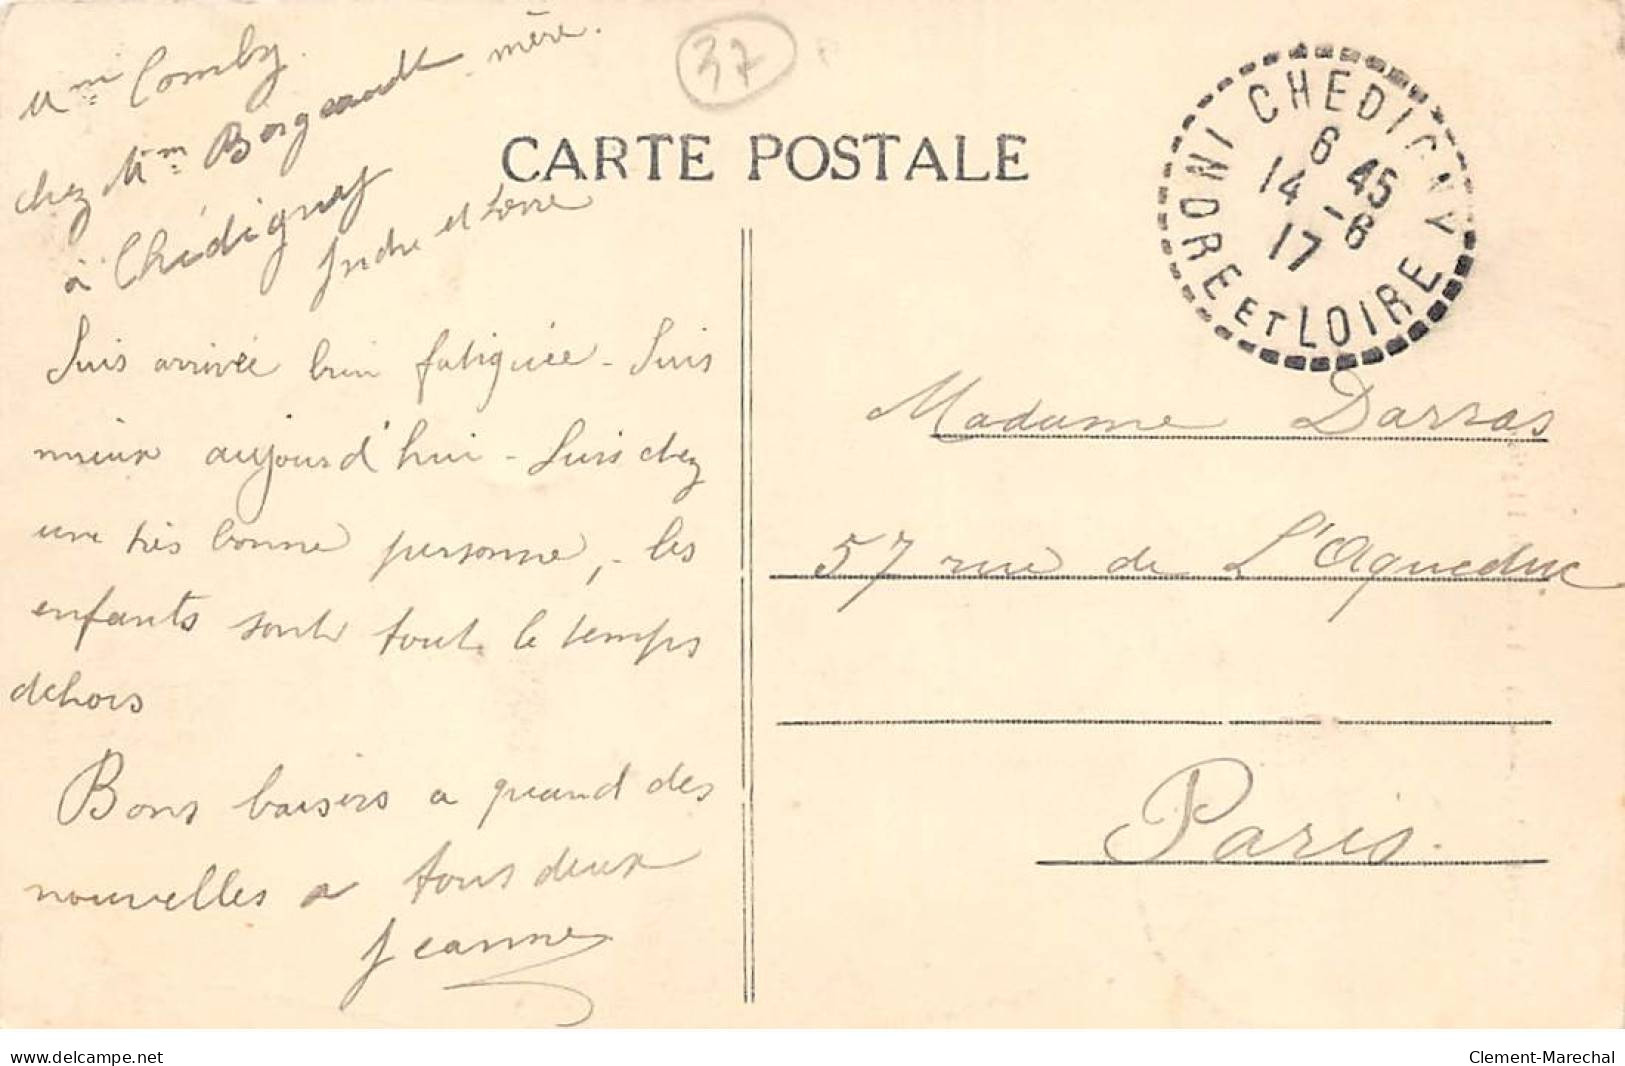 Mme Comby.
chez Mme Borgeault mère.
à Chédigny
Indre et Loire
37
CARTE POSTALE
CHEDIGNY
6 45
14 - 6
17
INDRE ET LOIRE
Suis arrivée bien fatiguée - Suis
mieux aujourd'hui - Suis chez
une très bonne personne, - les
enfants sont tout le temps
dehors
Bons baisers a quand des
nouvelles a tous deux
Jeanne
Madame Darras
57 rue de L'Aqueduc
Paris.
delcampe.net
Clement-Marechal